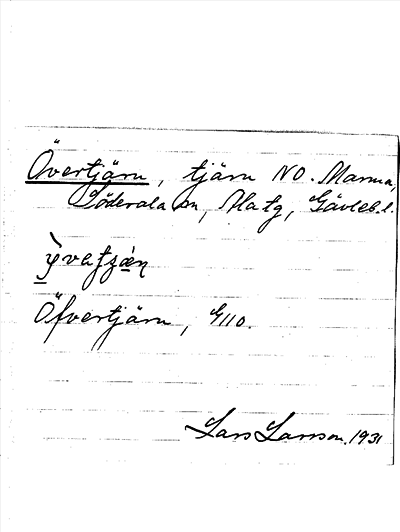 Övertjärn, tjärn NO. Marma,
Söderala sn, Ala tg, Gävleb. l.
Öfvertjärn, G110.
Lars Larsson. 1931